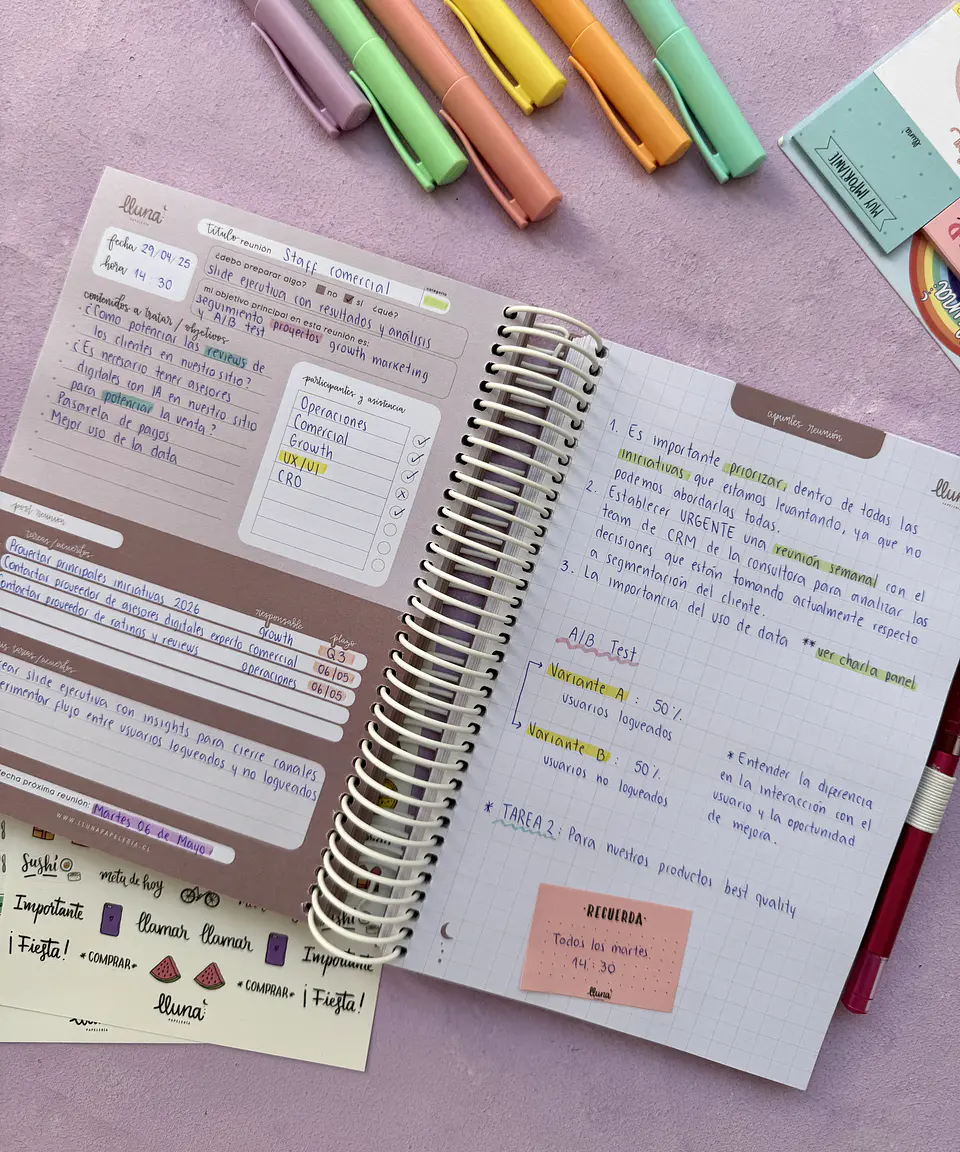 lluna
PAPELERÍA
fecha 29/04/25
hora 14:30
título reunión Staff comercial
categoría
¿debo preparar algo? no sí ¿qué?
slide ejecutiva con resultados y análisis
mi objetivo principal en esta reunión es:
seguimiento proyectos growth marketing
y A/B test
contenidos a tratar / objetivos
· ¿Como potenciar las reviews de
los clientes en nuestro sitio?
· ¿Es necesario tener asesores
digitales con IA en nuestro sitio
para potenciar la venta?
· Pasarela de pagos
· Mejor uso de la data
participantes y asistencia
Operaciones
Comercial
Growth
UX/UI
CRO
post reunión
tareas/acuerdos responsable plazo
Proyectar principales iniciativas 2026 growth Q3
Contactar proveedor de asesores digitales experto comercial 06/05
Contactar proveedor de ratings y reviews operaciones 06/05
tareas/acuerdos
crear slide ejecutiva con insights para cierre canales
experimentar flujo entre usuarios logueados y no logueados
fecha próxima reunión: Martes 06 de Mayo
WWW.LLUNAPAPELERIA.CL
apuntes reunión
lluna
1. Es importante priorizar, dentro de todas las
iniciativas que estamos levantando, ya que no
podemos abordarlas todas.
2. Establecer URGENTE una reunión semanal con el
team de CRM de la consultora para analizar las
decisiones que están tomando actualmente respecto
a segmentación del cliente.
3. La importancia del uso de data ** ver charla panel
A/B Test
Variante A: 50%
usuarios logueados
Variante B: 50%
usuarios no logueados
* Entender la diferencia
en la interacción con el
usuario y la oportunidad
de mejora.
* TAREA 2: Para nuestros productos best quality
·RECUERDA·
Todos los martes
14:30
lluna
MUY IMPORTANTE
lluna
Sushi
meta de hoy
Importante
llamar llamar
Importante
¡Fiesta!
*COMPRAR*
*COMPRAR*
¡Fiesta!
lluna
PAPELERÍA
PAPELERÍA